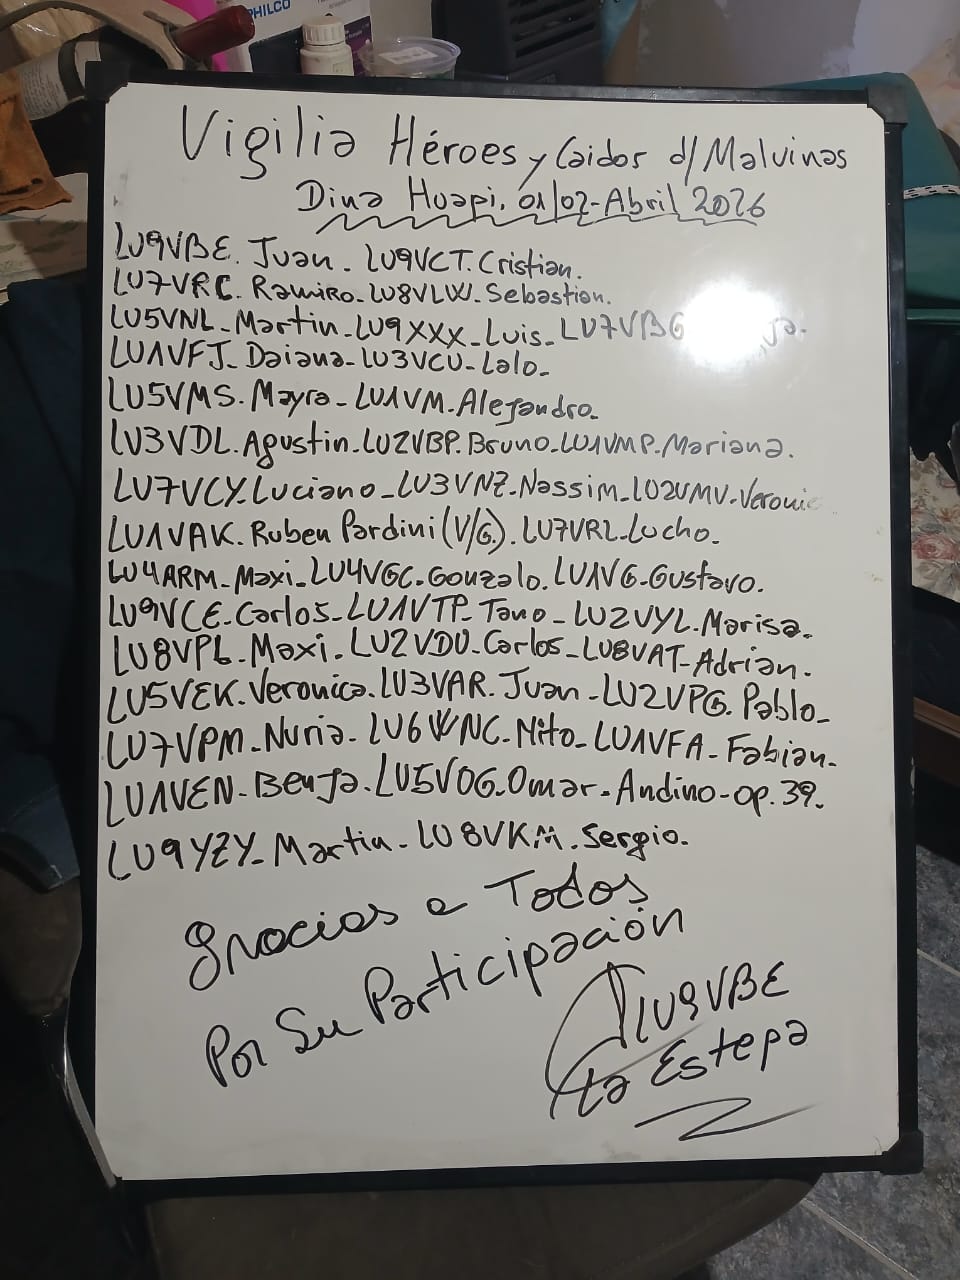 PHILCO
Vigilia Héroes y Caidos d/ Malvinas
Dina Huapi. 01/02-Abril 2026
LU9VBE. Juan. LU9VCT. Cristian.
LU7VRC. Ramiro. LU8VLW. Sebastian.
LU5VNL_Martin_LU9XXX_Luis_LU7VBG
LU1VFJ_Daiana_LU3VCU_Lalo_
LU5VMS. Mayra_LU1VM. Alejandro.
LU3VDL. Agustin. LU2VBP. Bruno. LU1VMP. Mariana.
LU7VCY. Luciano_LU3VNZ. Nassim_LU2VMV.
LU1VAK. Ruben Pardini (V/G.). LU7VRL. Lucho.
LU4ARM_Maxi_LU4VGC. Gonzalo. LU1VG. Gustavo.
LU9VCE. Carlos_LU1VTP_Tano_LU2VYL. Marisa.
LU8VPL. Maxi. LU2VDU. Carlos_LU8VAT_Adrian.
LU5VEK. Veronica. LU3VAR. Juan_LU2VPG. Pablo_
LU7VPM_Nuria_LU6WNC. Mito_LU1VFA_Fabian.
LU1VEN. Benja. LU5VOG. Omar. Andino-op. 39.
LU9YZY_Martin_LU8VKM. Sergio.
Gracias a Todos
Por Su Participación
LU9VBE
La Estepa